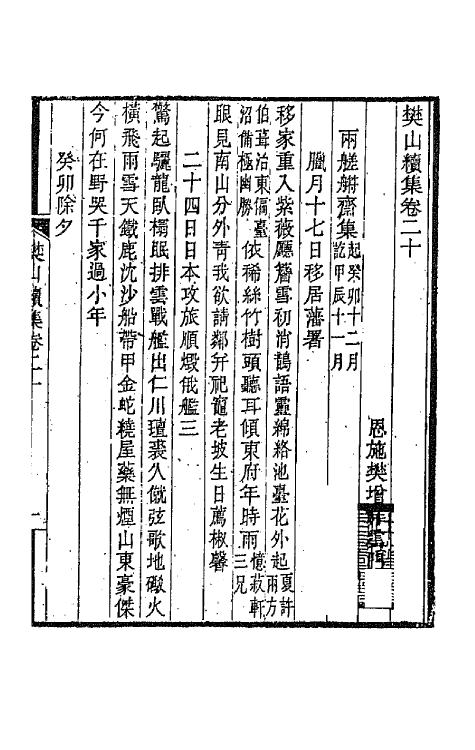 樊山續集卷二十
恩施樊增祥雲門
兩艖艑齋集起癸卯十二月訖甲辰十一月
臘月十七日移居藩署
移家重入紫薇廳簷雪初消鵲語靈綿絡池臺花外起夏許兩方
伯葺治東偏臺沼備極幽勝依稀絲竹樹頭聽耳傾東府年時雨憶菽軒三兄
眼見南山分外青我欲請鄰幷祀竈老坡生日薦椒馨
二十四日日本攻旅順燬俄艦三
驚起驪龍臥榻眠排雲戰艦出仁川璮裘人僦弦歌地礮火
橫飛雨雪天鐵鹿沈沙船帶甲金蛇繞屋藥無煙山東豪傑
今何在野哭千家過小年
癸卯除夕
樊山續集卷二十
一